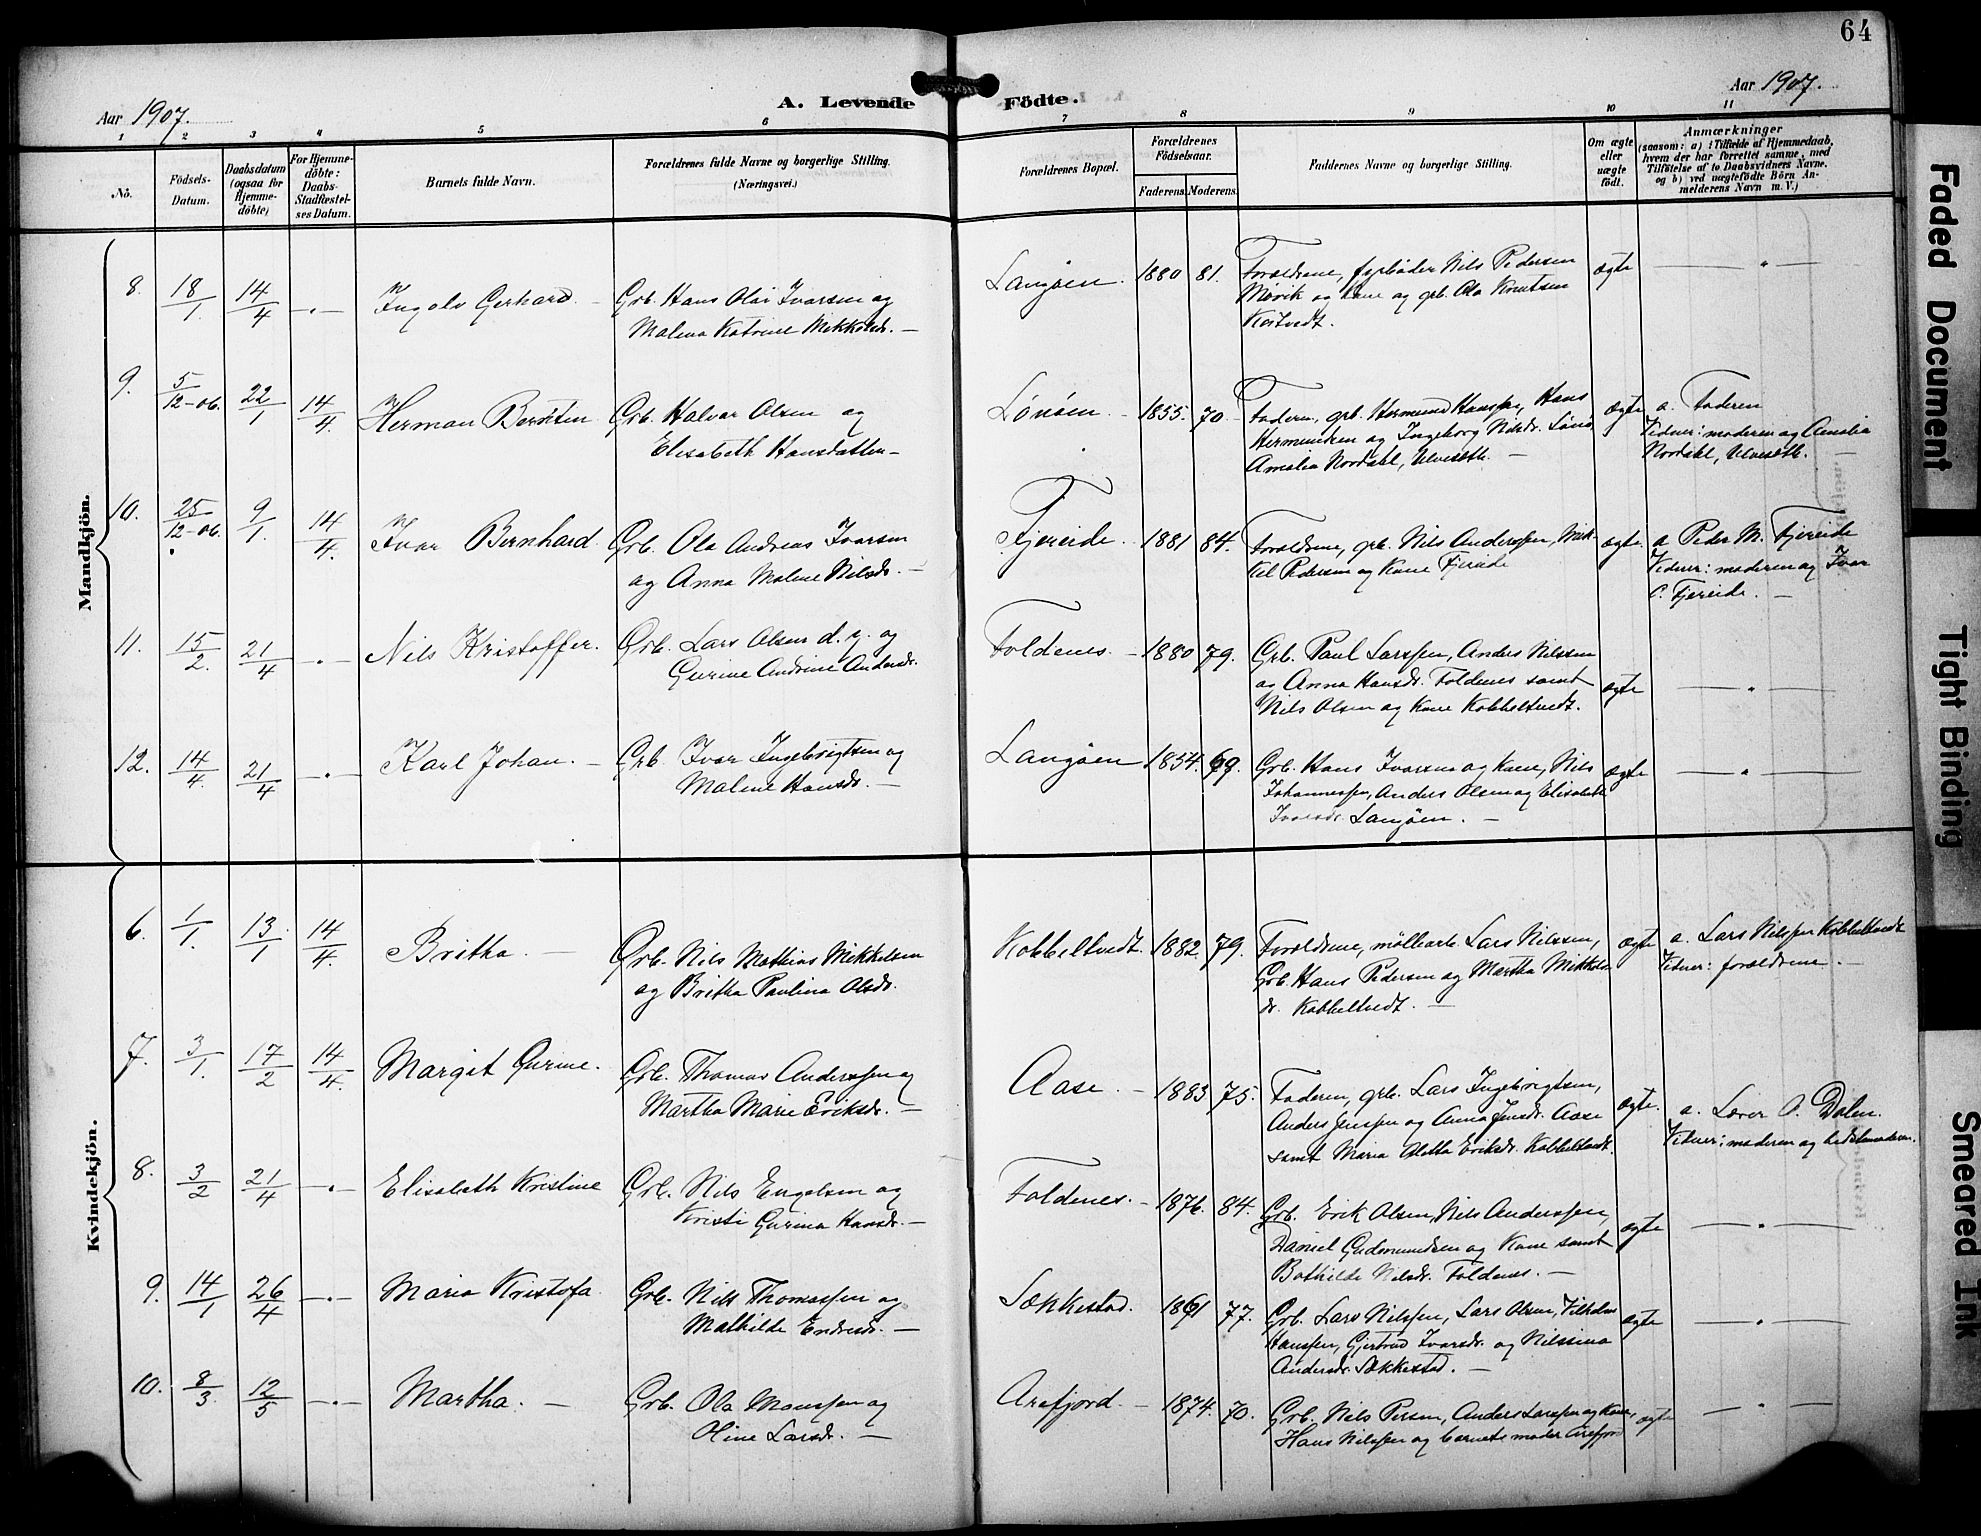 64
Aar 1907.
A. Levende Födte.
Aar 1907.
1 2 3 4 5 6 7 8 9 10 11
No.
Födsels-Datum.
Daabsdatum (ogsaa for Hjemme-döbte)
For Hjemme-döbte: Daabs-Stadfæstel-ses Datum.
Barnets fulde Navn.
Forældrenes fulde Navne og borgerlige Stilling. (Næringsvei.)
Forældrenes Bopæl.
Forældrenes Födselsaar.
Faderens. Moderens.
Faddernes Navne og borgerlige Stilling.
Om ægte eller uægte födt.
Anmærkninger
(saasom: a) i Tilfælde af Hjemmedaab,
hvem der har forrettet samme, med
Tilföielse af to Daabsvidners Navne,
og b) ved uægtefödte Börn An-
melderens Navn m. V.)
Mandkjön.
8. 18/1 14/4 Ingolv Gerhard. Grb. Hans Olai Ivarsen og
Malena Katrine Mikkelsdr.
Langöen. 1880 81. Forældrene, fyrböder Nils Pedersen
Mövik og kone og grb. Ola Knutsen
ægte
9. 5/12-06. 22/1 14/4. Herman Grb. Halvar Olsen og
Elisabeth Hansdatter
Lönöen. 1855. 70. Faderen, grb. Hermund Hanssen, Hans
Hermundsen og Ingeborg Nilsdr. Lönö
Amalia Nordahl, Ulveseth.
ægte a. Faderen
Vidner: moderen og Amalia
Nordahl, Ulveseth.
10. 25/12-06. 9/1. 14/4. Ivar Bernhard. Grb. Ola Andreas Ivarsen
og Anna Malene Nilsdr.
Fjereide. 1881 84. Forældrene, grb. Nils Anderssen, Mik-
kel Pedersen og Kone Fjereide
ægte. a Peder M. Fjereide
Vidner: moderen og Ivar
C. Fjereide.
11. 15/2. 21/4 Nils Kristoffer. Grb. Lars Olsen d. y. og
Gurine Andrine Andersdr.
Foldenes. 1880 79. Grb. Paul Larssen, Anders Nilssen
og Anna Hansdr. Foldenes samt
Nils Olsen og Kone Kobbeltvedt.
ægte
12. 14/4. 21/4 Karl Johan. Grb. Ivar Ingebrigtsen og
Malene Hansdr.
Langöen 1854. 69. Grb. Hans Ivarsen og Kone, Nils
Johannessen, Anders Olsen og Elisabeth
Ivarsdr. Langöen.
ægte
Kvindekjön.
6. 1/1. 13/1 14/4. Britha. Grb. Nils Mathias Mikkelsen
og Britha Paulina Olsdr.
Kobbeltvedt. 1882. 79. Forældrene, möllearb. Lars Nilssen,
Grb. Hans Pedersen og Martha Mikkels-
dr. Kobbeltvedt.
ægte a. Lars Nilssen Kobbeltvedt
Vidner: forældrene.
7. 3/1. 17/2 14/4. Margit Gurine. Grb. Thomas Anderssen og
Martha Marie Eriksdr.
Aase. 1883 75. Faderen, grb. Lars Ingebrigtsen,
Anders Jenssen og Anna Jensdr. Aase
samt Maria Eriksdr. Kobbeltvedt.
ægte. a. Lærer O. Dalen.
Vidner: moderen og bedstemoderen.
8. 3/2 21/4 Elisabeth Kristine Grb. Nils Engelsen og
Kristi Gurina Hansdr.
Foldenes. 1876. 84. Grb. Erik Olsen, Nils Anderssen,
Daniel Gudmundsen og Kone samt
Bothilde Nilsdr. Foldenes.
ægte
9. 14/1 26/4 Maria Kristofa Grb. Nils Thomassen og
Mathilde Endresdr.
Sækkestad. 1861 77. Grb. Lars Nilssen, Lars Olsen, Vilhelm
Hanssen, Gjertrud Ivarsdr. og Nilssina
Andersdr. Sækkestad.
ægte
10. 8/3. 12/5 Martha. Grb. Ola Monssen og
Oline Larsdr.
Arefjord. 1874. 70. Grb. Nils Persen, Anders Larssen og Kone,
Hans Nilssen og barnets moder Arefjord
ægte
Faded Document
Tight Binding
Smeared Ink